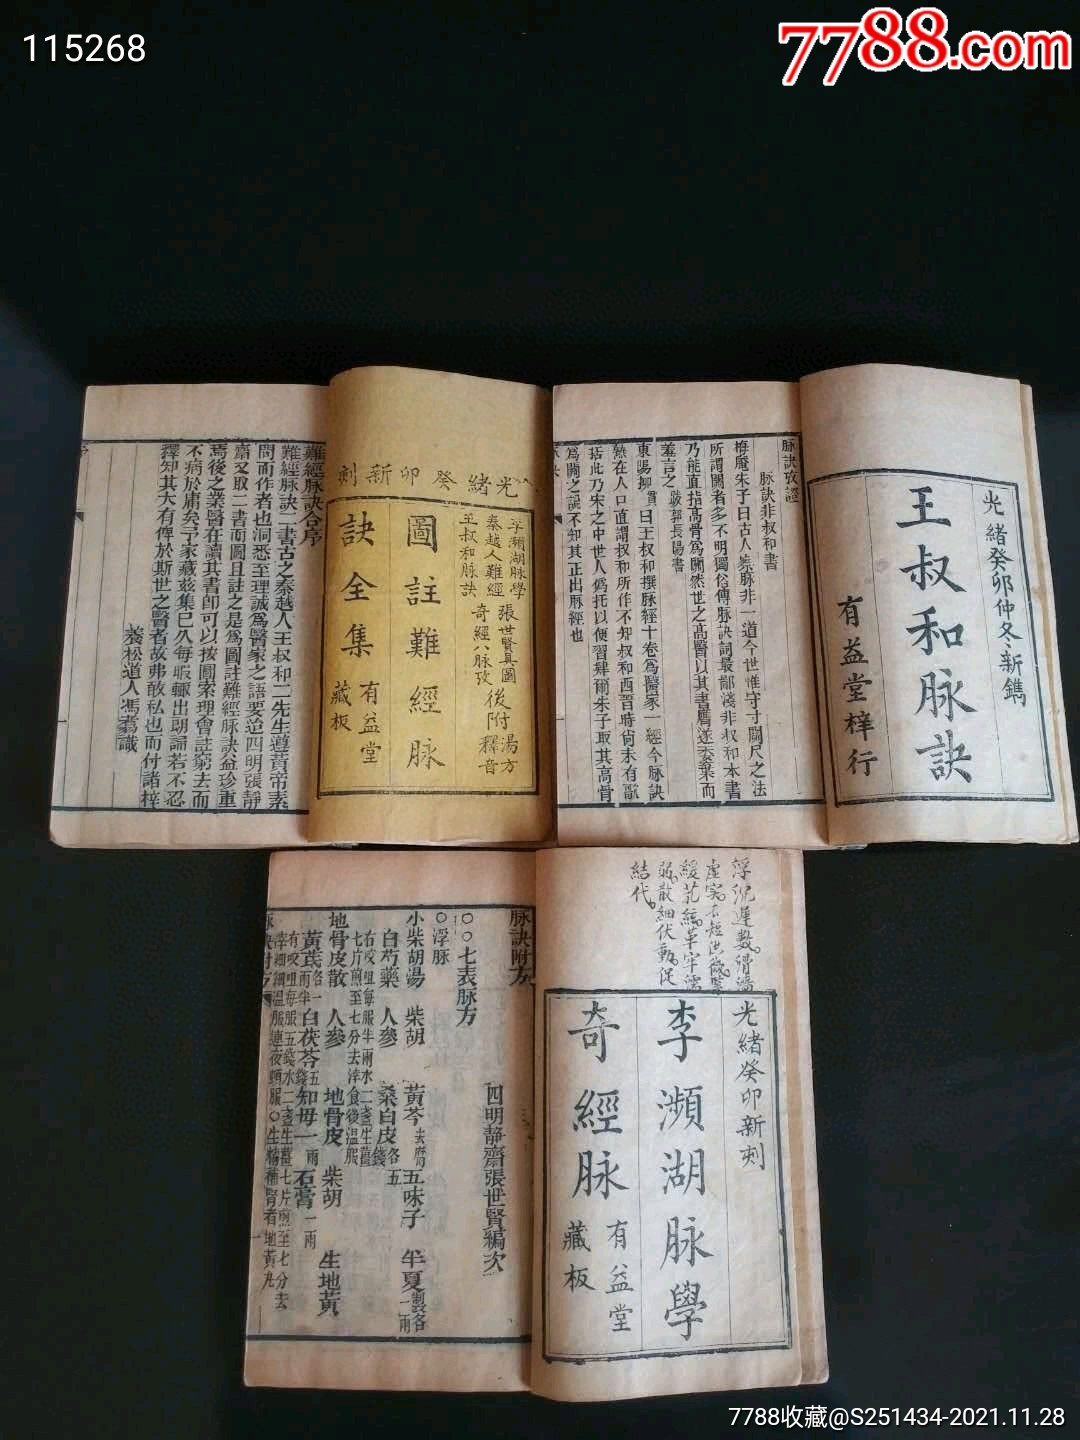 115268
7788.com
光緒癸卯新刻
李瀕湖脉學
秦越人難經
王叔和脉訣
張世賢具圖
奇經八脉攷
後附湯方
釋音
圖註難經脉
訣全集
有益堂
藏板
難經脉訣合序
難經脉訣二書古之秦越人王叔和二先生遵黃帝素
問而作者也洞悉至理誠爲醫家之語要迨四明張靜
齋又取二書而圖且註之是爲圖註難經脉訣益珍重
焉後之業醫在讀其書卽可以按圖索理會註窮去而
不病於庸矣予家藏玆集巳久每暇輒出朗誦若不忍
釋知其大有俾於斯世之醫者故弗敢私也而付諸梓
養松道人馮
識
光緒癸卯仲冬新鐫
王叔和脉訣
有益堂梓行
脉訣攷證
脉訣非叔和書
梅庵朱子曰古人察脉非一道今世惟守寸關尺之法
所謂關者多不明獨俗傳脉訣詞最鄙淺非叔和本書
乃能直指高骨爲關然世之高醫以其書贋遂委棄而
羞言之
跋郭長陽書
東陽柳貫曰王叔和撰脉經十卷爲醫家一經今脉訣
熟在人口直謂叔和所作不知叔和西晋時尙未有歌
括此乃宋之中世人僞托以便習肄爾朱子取其高骨
爲關之說不知其正出脉經也
浮沉遲數滑濇
虛實長短洪微緊
緩芤絃革牢濡
弱散細伏動促
結代
光緒癸卯新刻
李瀕湖脉學
奇經脉
有益堂
藏板
脉訣附方
四明靜齋張世賢編次
○○七表脉方
○浮脉
小柴胡湯 柴胡 黃芩去腐 五味子 半夏製各一兩
白芍藥 人參 桑白皮各五錢
右㕮咀每服半兩水二盞生薑
七片煎至七分去滓食後溫服
地骨皮散 人參 地骨皮 柴胡 生地黃
黃芪各一兩半 白茯苓五錢 知母一兩 石膏一兩
右㕮咀每服五錢水二盞生薑七片煎至七分去
滓細細溫服連夜頓服○生精補腎者地黃丸
7788收藏@S251434-2021.11.28